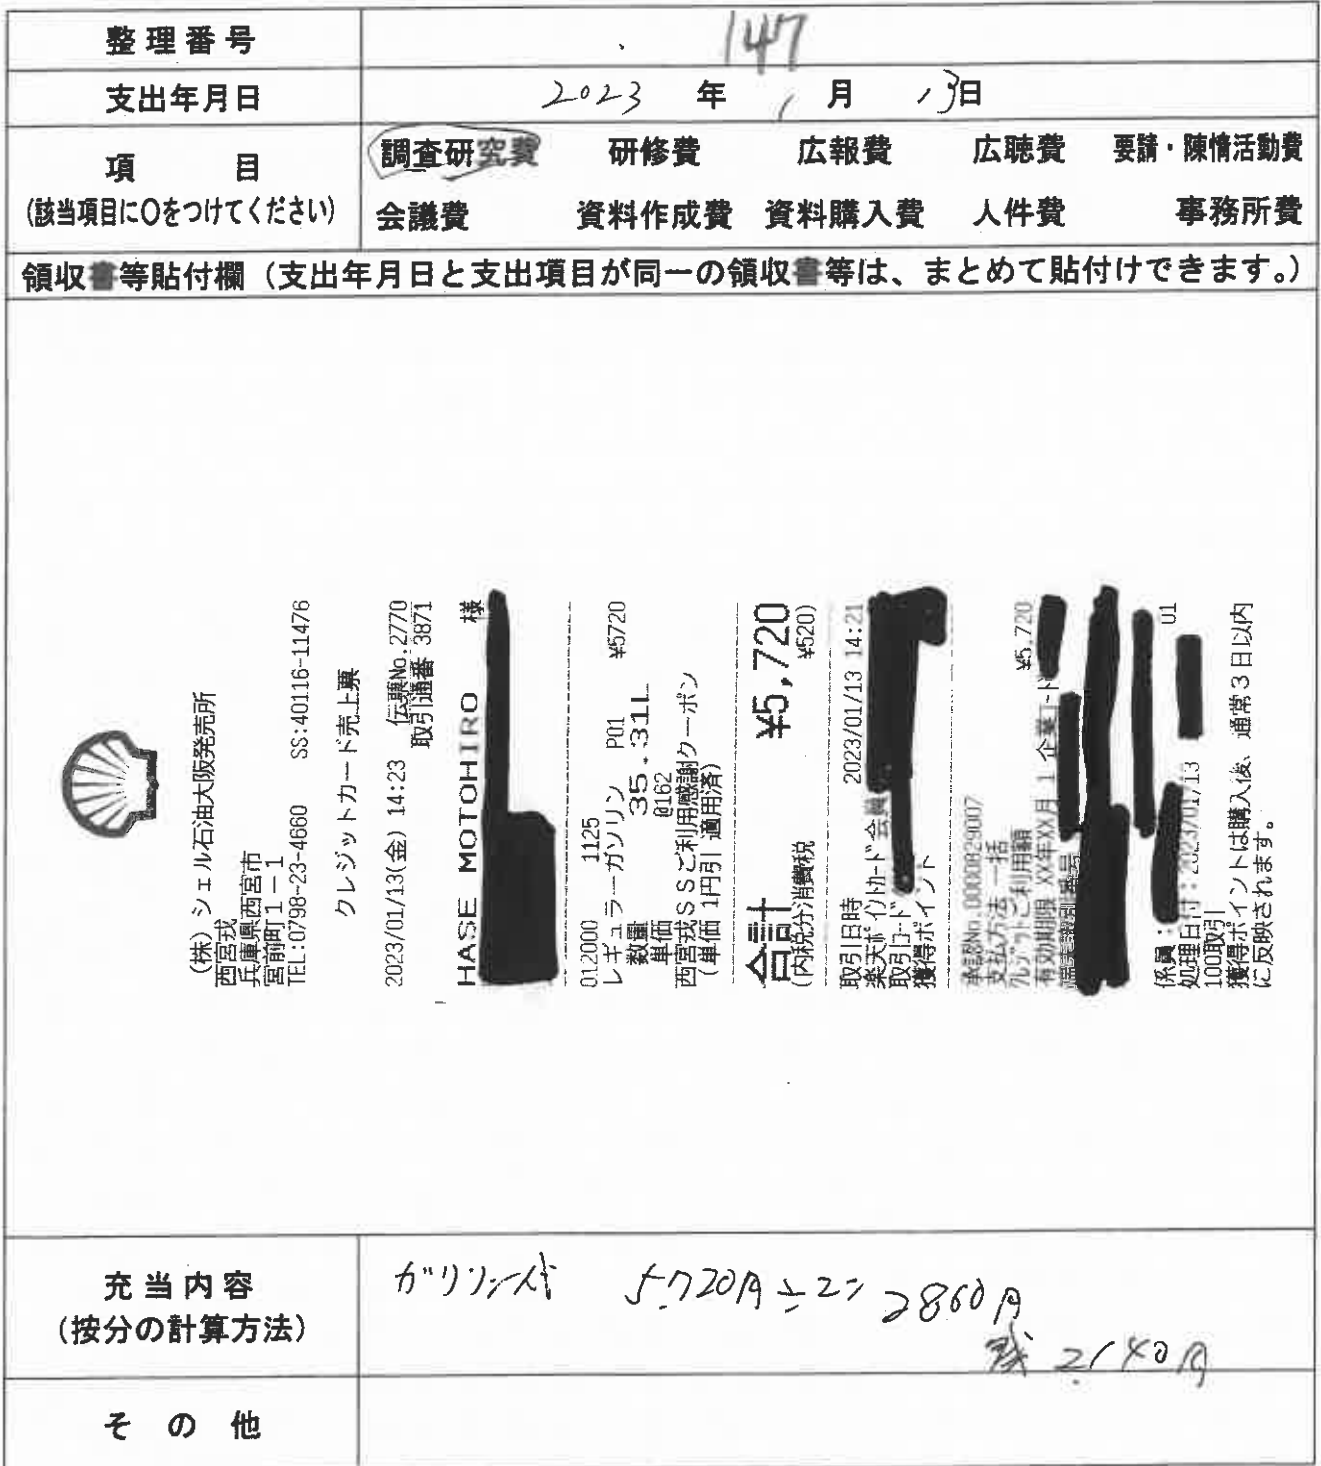 整理番号 147
支出年月日 2023 年 1 月 13日
項 目 調査研究費 研修費 広報費 広聴費 要請・陳情活動費
(該当項目に〇をつけてください) 会議費 資料作成費 資料購入費 人件費 事務所費
領収書等貼付欄（支出年月日と支出項目が同一の領収書等は、まとめて貼付けできます。）
(株)シェル石油大阪発売所
西宮戎
兵庫県西宮市
宮前町1-1
TEL:0798-23-4660 SS:40116-11476
クレジットカード売上票
2023/01/13(金) 14:23 伝票No.2770
取引通番 3871
HASE MOTOHIRO 様
012000 1125
レギュラーガソリン P01 ¥5720
数量 35.31L
単価 @162
西宮戎SSご利用感謝クーポン
(単価 1円引 適用済)
合計 ¥5,720
(内税分消費税 ¥520)
取引日時 2023/01/13 14:21
楽天ポイントカード会員
取引コード
獲得ポイント
承認No.0000829007
支払方法 一括
クレジットご利用額 ¥5,720
有効期限 XX年XX月 1 企業コード
係員: 01
処理日付:2023/01/13
100取引
獲得ポイントは購入後、通常3日以内
に反映されます。
充当内容 ガソリン代 5,720円÷2= 2860円
(按分の計算方法) 残 2,140円
その他